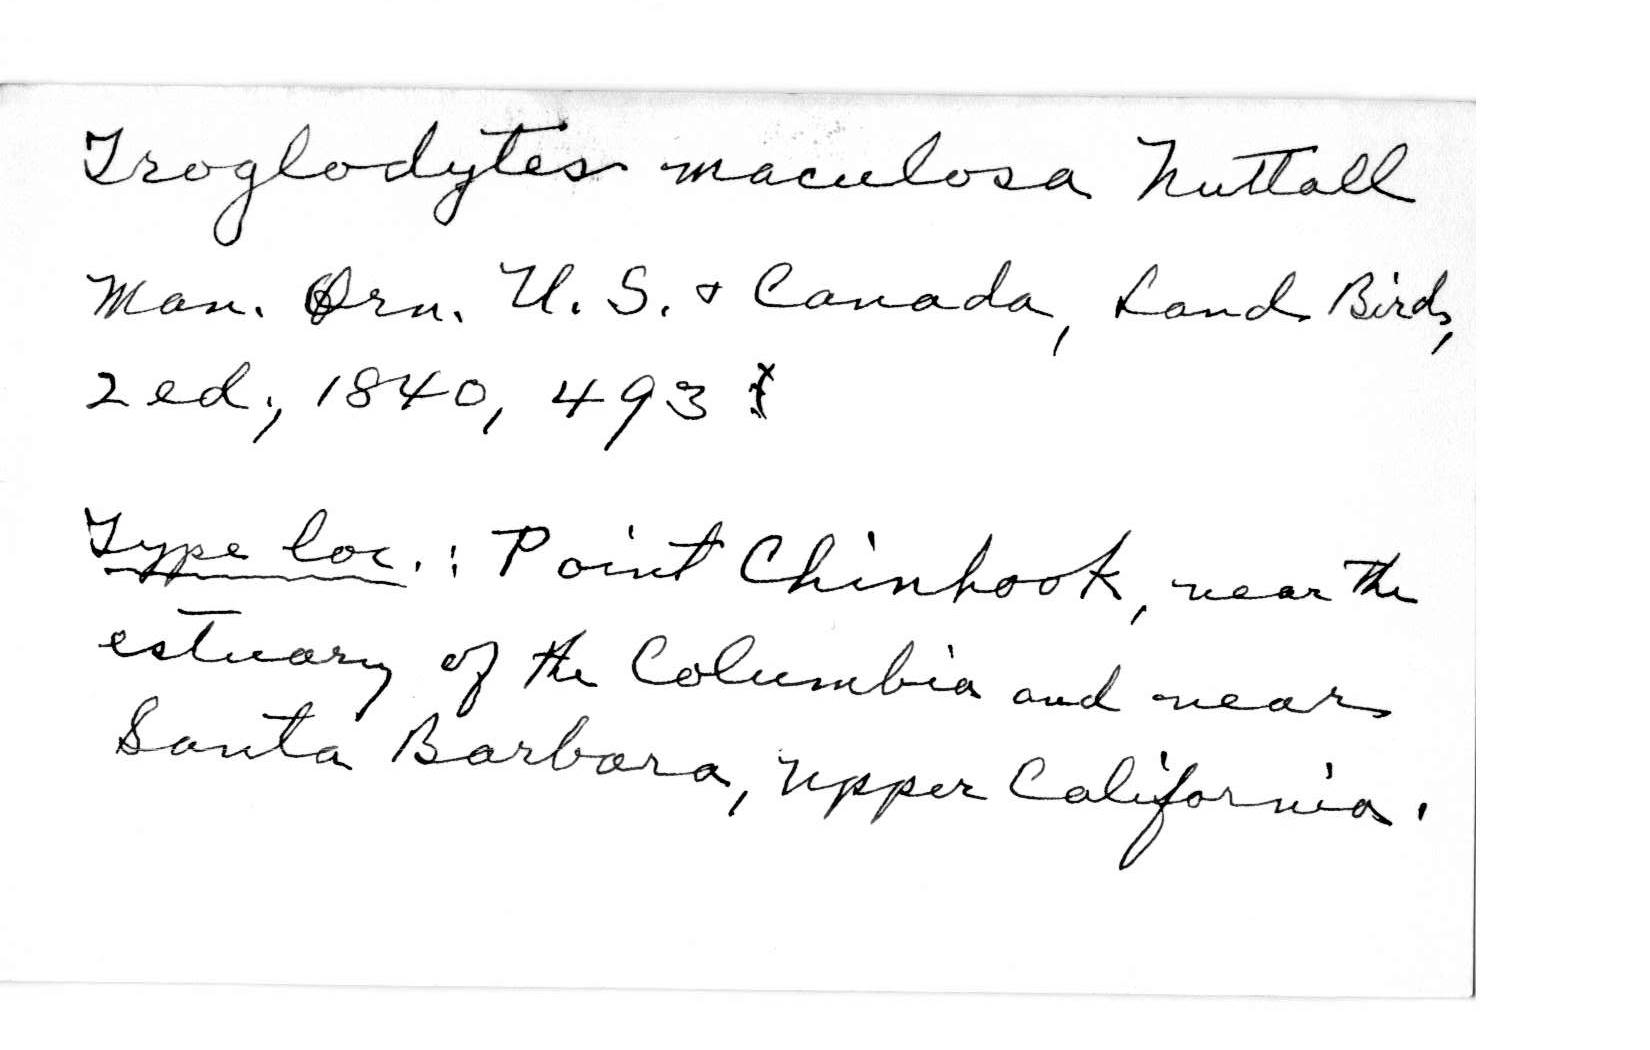 Troglodytes maculosa Nuttall
Man. Orn. U. S. & Canada, Land Birds,
2 ed., 1840, 493
Type loc.: Point Chinhook, near the
estuary of the Columbia and near
Santa Barbara, Upper California.